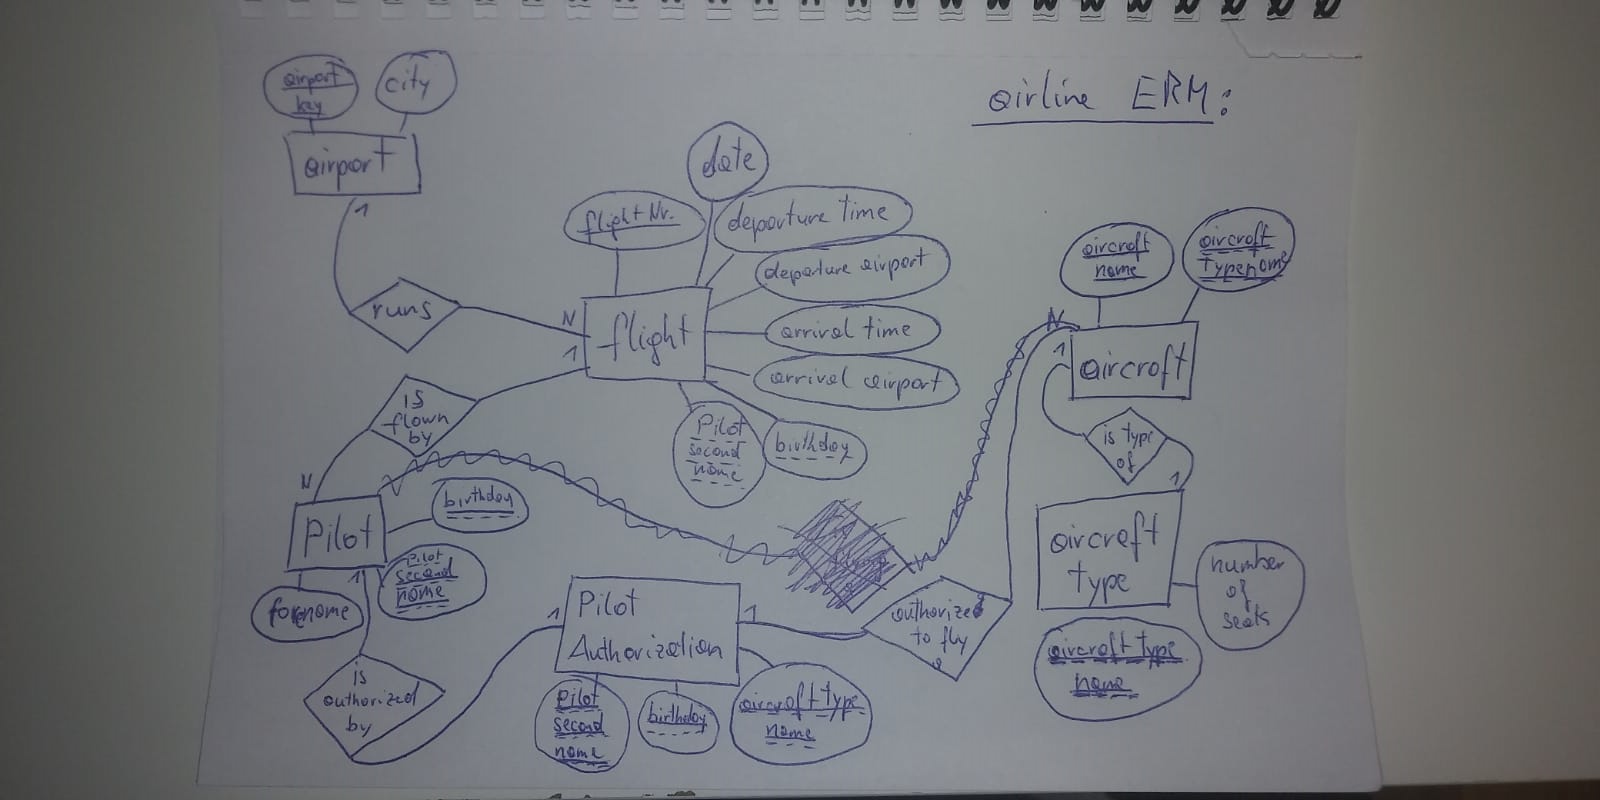 airline ERM:
airport
key
city
airport
1
runs
N
date
flight Nr.
departure time
departure airport
arrival time
arrival airport
flight
1
Pilot
second
name
birthday
is
flown
by
N
Pilot
birthday
Pilot
second
name
forename
1
is
authorized
by
1
Pilot
Authorization
1
Pilot
second
name
birthday
aircraft type
name
authorized
to fly
N
1
aircraft
name
aircraft
typename
aircraft
is type
of
1
aircraft
type
number
of
seats
aircraft type
name